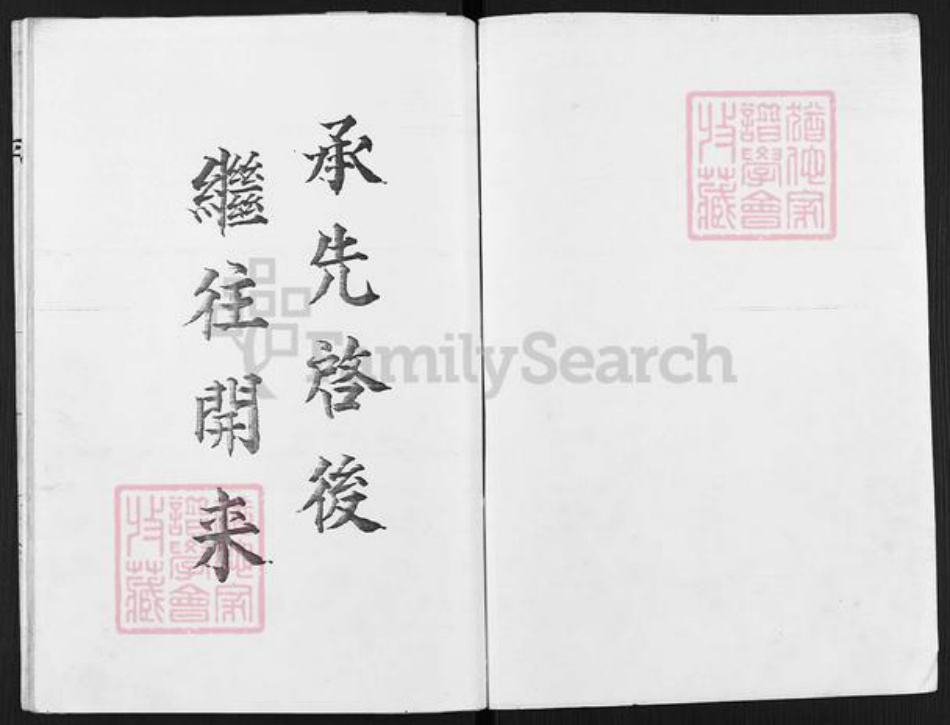 猶他家
譜學會
收藏
承先啓後
繼往開来
猶他家
譜學會
收藏
FamilySearch